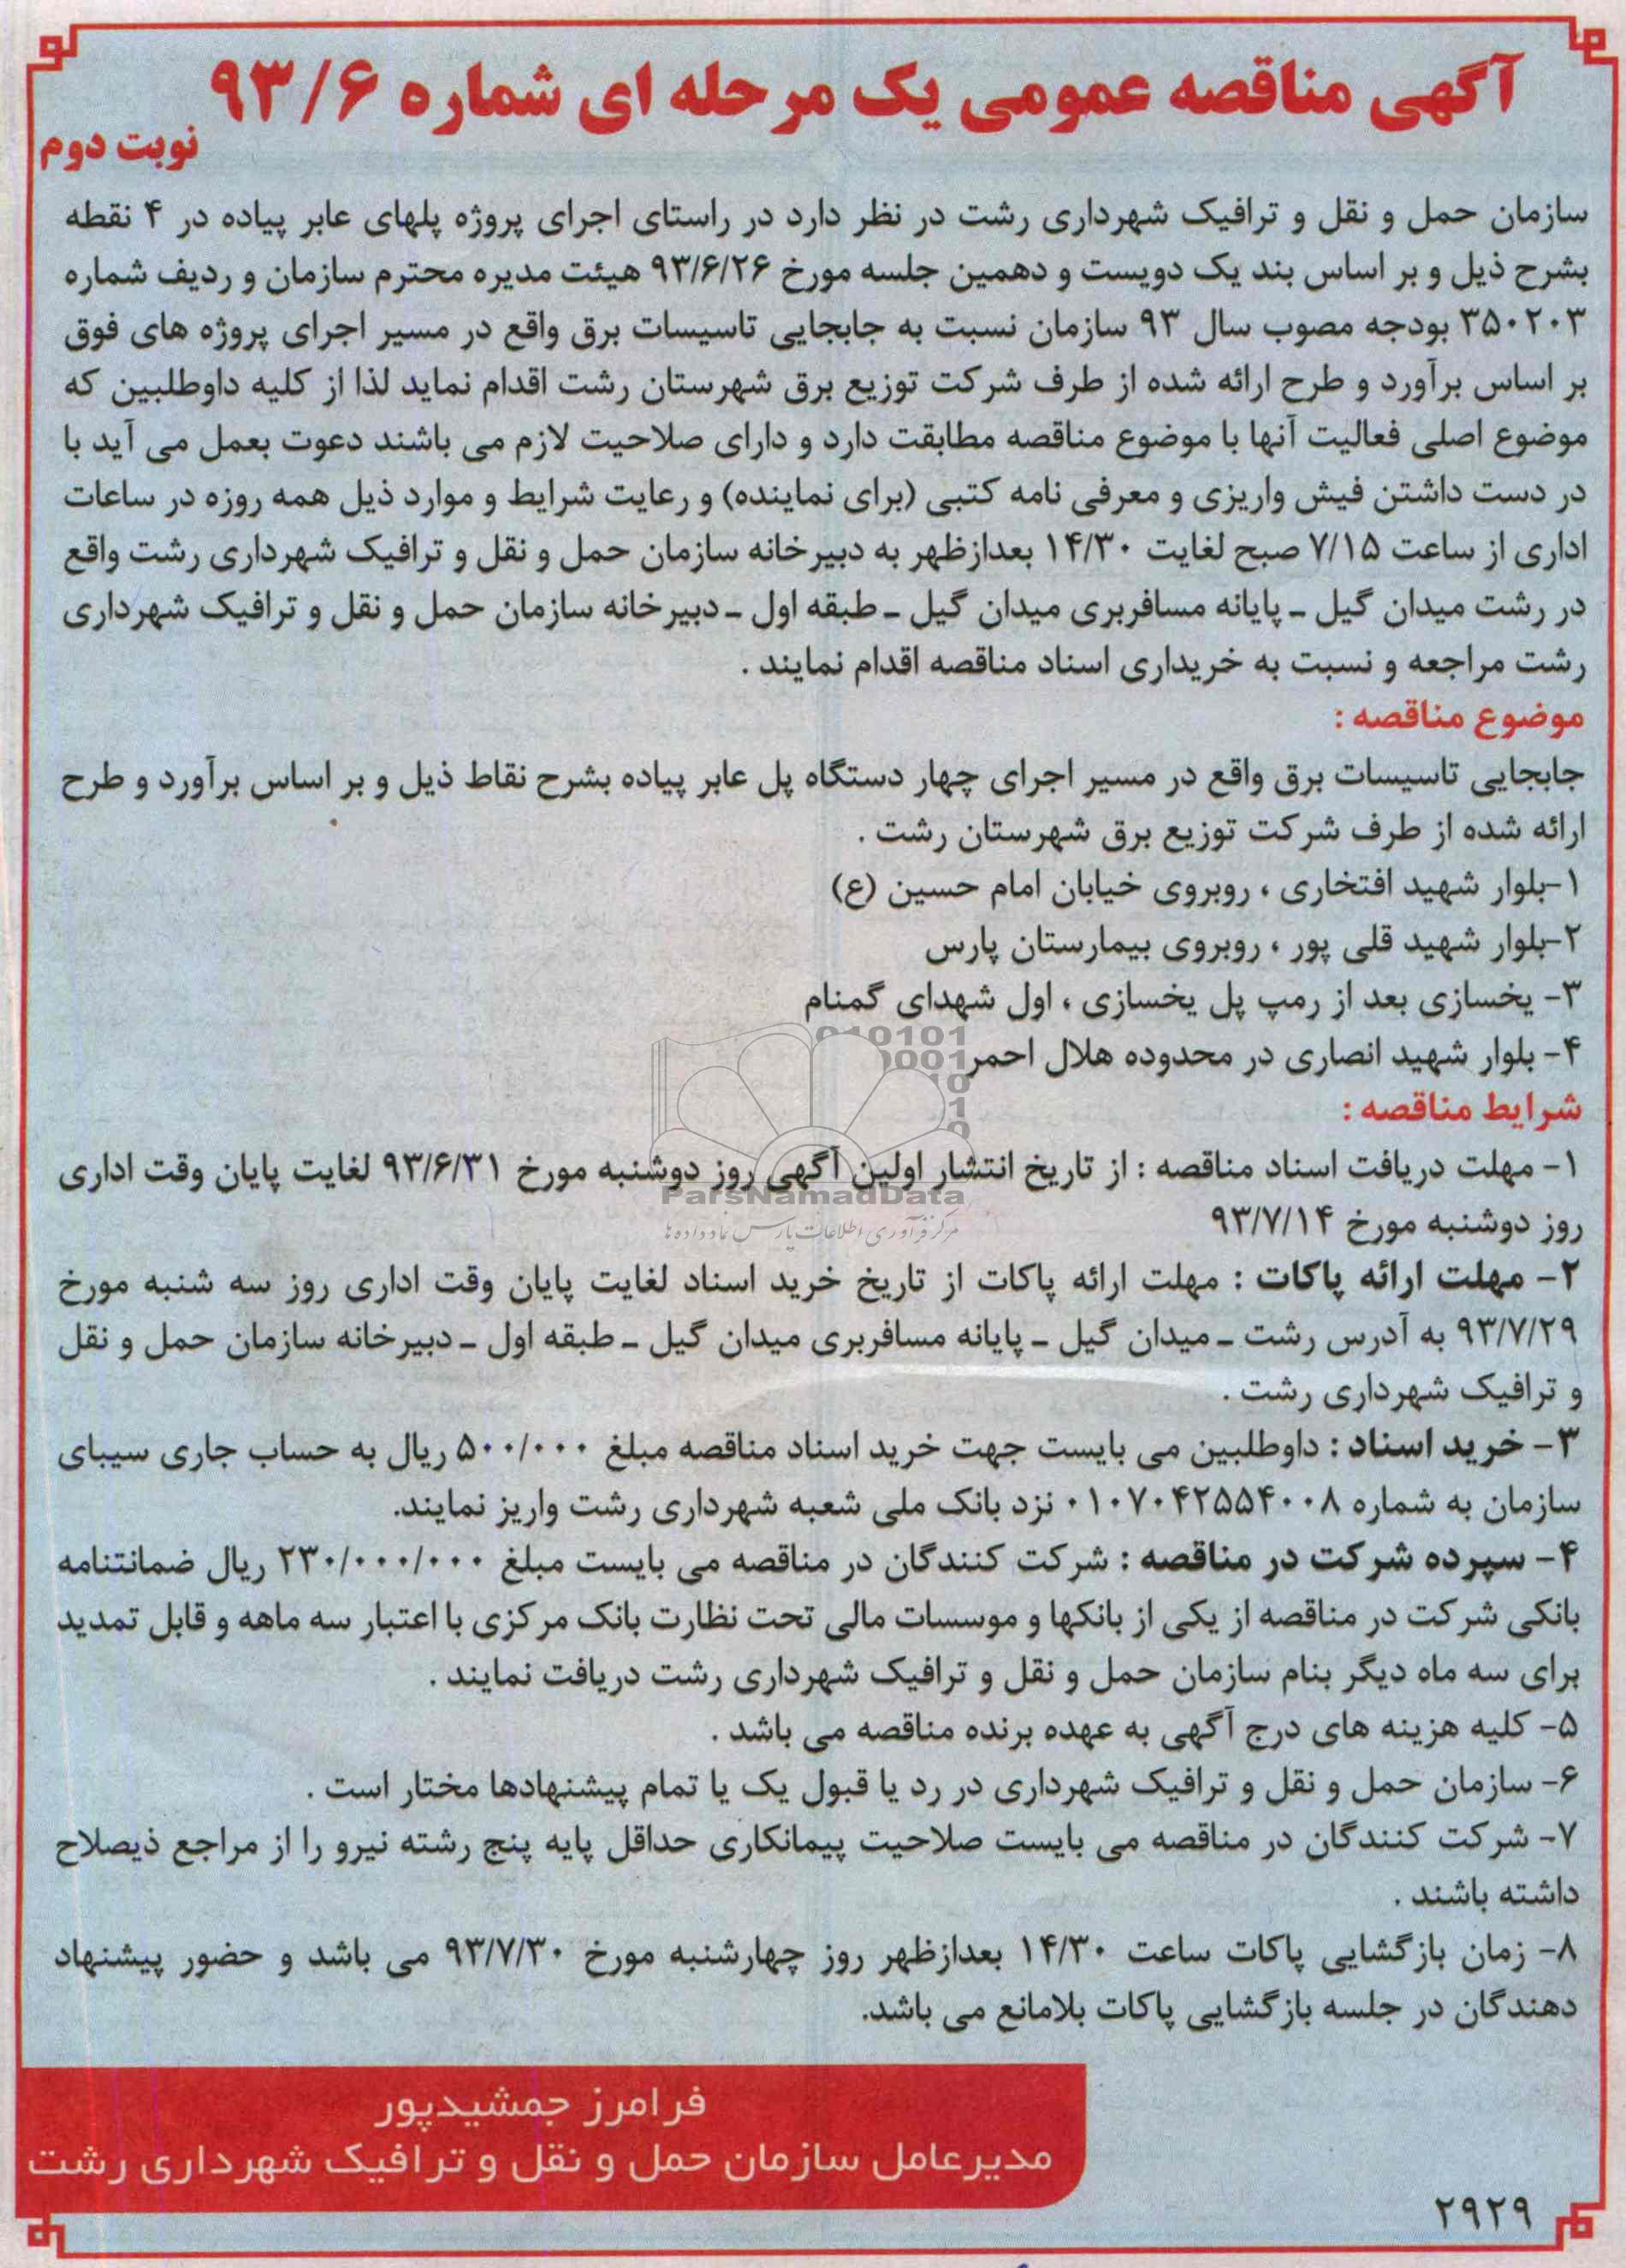 آگهی مناقصه عمومی یک مرحله ای شماره ۹۳/۶
نوبت دوم
سازمان حمل و نقل و ترافیک شهرداری رشت در نظر دارد در راستای اجرای پروژه پلهای عابر پیاده در ۴ نقطه
بشرح ذیل و بر اساس بند یک دویست و دهمین جلسه مورخ ۹۳/۶/۲۶ هیئت مدیره محترم سازمان و ردیف شماره
۳۵۰۲۰۳ بودجه مصوب سال ۹۳ سازمان نسبت به جابجایی تاسیسات برق واقع در مسیر اجرای پروژه های فوق
بر اساس برآورد و طرح ارائه شده از طرف شرکت توزیع برق شهرستان رشت اقدام نماید لذا از کلیه داوطلبین که
موضوع اصلی فعالیت آنها با موضوع مناقصه مطابقت دارد و دارای صلاحیت لازم می باشند دعوت بعمل می آید با
در دست داشتن فیش واریزی و معرفی نامه کتبی (برای نماینده) و رعایت شرایط و موارد ذیل همه روزه در ساعات
اداری از ساعت ۷/۱۵ صبح لغایت ۱۴/۳۰ بعدازظهر به دبیرخانه سازمان حمل و نقل و ترافیک شهرداری رشت واقع
در رشت میدان گیل ـ پایانه مسافربری میدان گیل ـ طبقه اول ـ دبیرخانه سازمان حمل و نقل و ترافیک شهرداری
رشت مراجعه و نسبت به خریداری اسناد مناقصه اقدام نمایند .
موضوع مناقصه :
جابجایی تاسیسات برق واقع در مسیر اجرای چهار دستگاه پل عابر پیاده بشرح نقاط ذیل و بر اساس برآورد و طرح
ارائه شده از طرف شرکت توزیع برق شهرستان رشت .
۱-بلوار شهید افتخاری ، روبروی خیابان امام حسین (ع)
۲-بلوار شهید قلی پور ، روبروی بیمارستان پارس
۳- یخسازی بعد از رمپ پل یخسازی ، اول شهدای گمنام
۴- بلوار شهید انصاری در محدوده هلال احمر
شرایط مناقصه :
۱- مهلت دریافت اسناد مناقصه : از تاریخ انتشار اولین آگهی روز دوشنبه مورخ ۹۳/۶/۳۱ لغایت پایان وقت اداری
ParsNamadData
روز دوشنبه مورخ ۹۳/۷/۱۴
مرکز فرآوری اطلاعات پارس نماد داده ها
۲- مهلت ارائه پاکات : مهلت ارائه پاکات از تاریخ خرید اسناد لغایت پایان وقت اداری روز سه شنبه مورخ
۹۳/۷/۲۹ به آدرس رشت ـ میدان گیل ـ پایانه مسافربری میدان گیل ـ طبقه اول ـ دبیرخانه سازمان حمل و نقل
و ترافیک شهرداری رشت .
۳- خرید اسناد : داوطلبین می بایست جهت خرید اسناد مناقصه مبلغ ۵۰۰/۰۰۰ ریال به حساب جاری سیبای
سازمان به شماره ۰۱۰۷۰۴۲۵۵۴۰۰۸ نزد بانک ملی شعبه شهرداری رشت واریز نمایند.
۴- سپرده شرکت در مناقصه : شرکت کنندگان در مناقصه می بایست مبلغ ۲۳۰/۰۰۰/۰۰۰ ریال ضمانتنامه
بانکی شرکت در مناقصه از یکی از بانکها و موسسات مالی تحت نظارت بانک مرکزی با اعتبار سه ماهه و قابل تمدید
برای سه ماه دیگر بنام سازمان حمل و نقل و ترافیک شهرداری رشت دریافت نمایند .
۵- کلیه هزینه های درج آگهی به عهده برنده مناقصه می باشد .
۶- سازمان حمل و نقل و ترافیک شهرداری در رد یا قبول یک یا تمام پیشنهادها مختار است .
۷- شرکت کنندگان در مناقصه می بایست صلاحیت پیمانکاری حداقل پایه پنج رشته نیرو را از مراجع ذیصلاح
داشته باشند .
۸- زمان بازگشایی پاکات ساعت ۱۴/۳۰ بعدازظهر روز چهارشنبه مورخ ۹۳/۷/۳۰ می باشد و حضور پیشنهاد
دهندگان در جلسه بازگشایی پاکات بلامانع می باشد.
فرامرز جمشیدپور
مدیرعامل سازمان حمل و نقل و ترافیک شهرداری رشت
۲۹۲۹